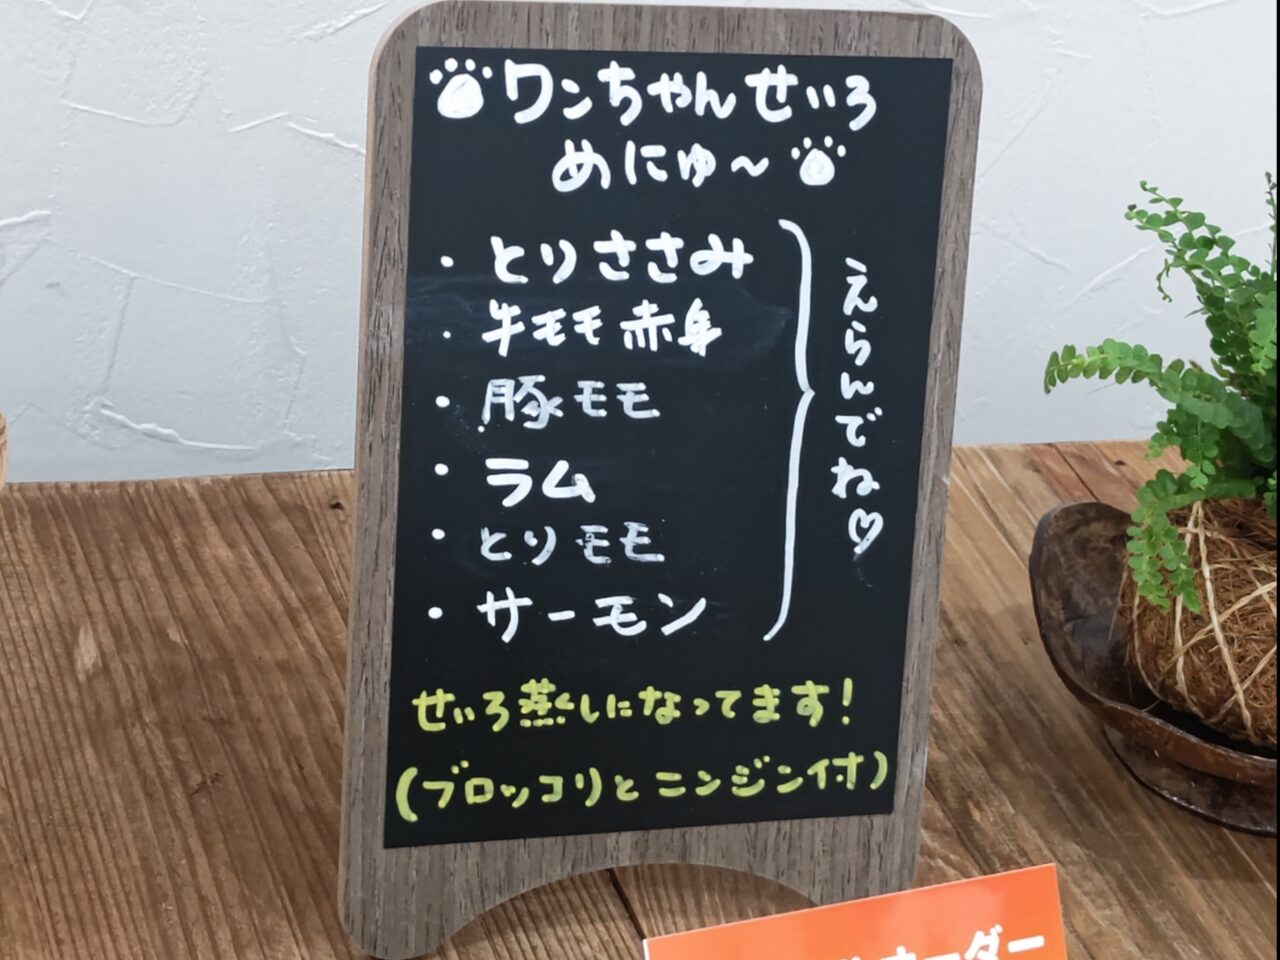 ワンちゃんせいろ
めにゅ〜
・とりささみ
・牛モモ赤身
・豚モモ
・ラム
・とりモモ
・サーモン
えらんでね♡
せいろ蒸しになってます!
(ブロッコリとニンジン付)
オーダー